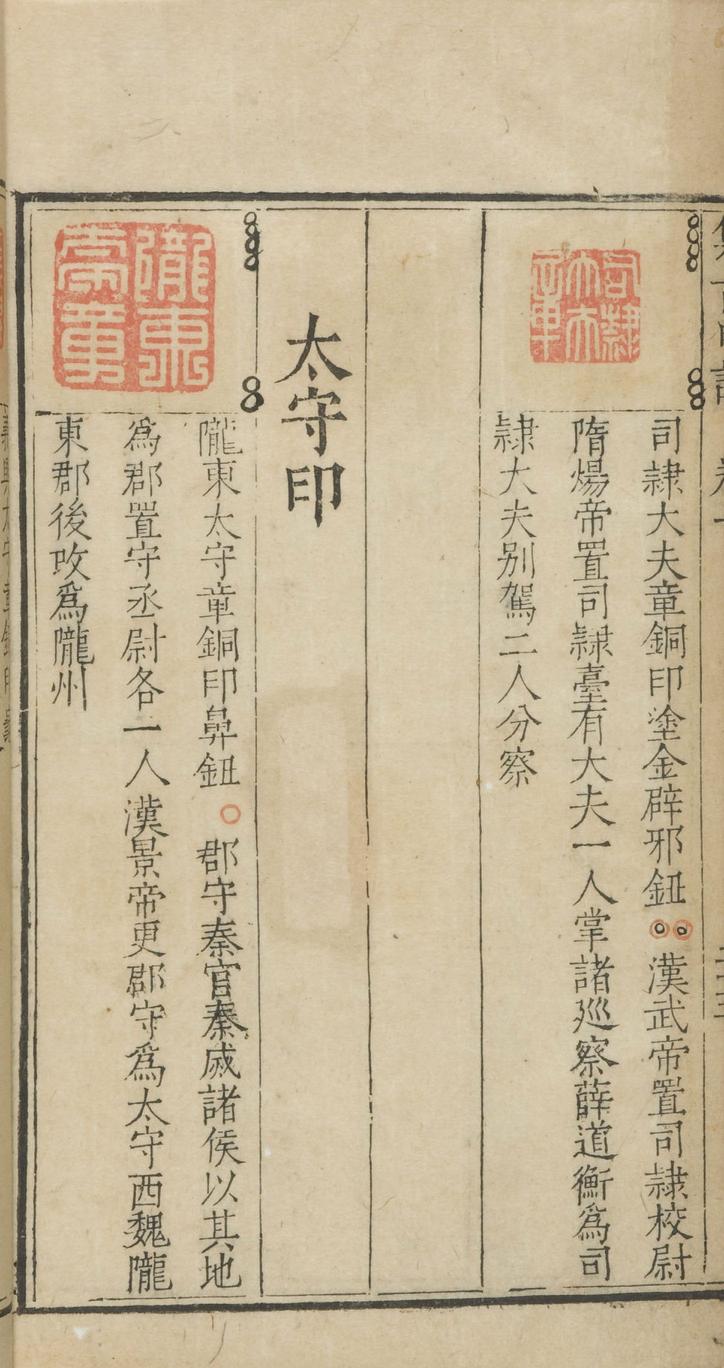 司隸大夫章
司隸大夫章銅印塗金辟邪鈕漢武帝置司隸校尉
隋煬帝置司隸臺有大夫一人掌諸廵察薛道衡為司
隸大夫别駕二人分察
太守印
隴東太守章
隴東太守章銅印鼻鈕○郡守秦官秦滅諸侯以其地
為郡置守丞尉各一人漢景帝更郡守為太守西魏隴
東郡後攺為隴州